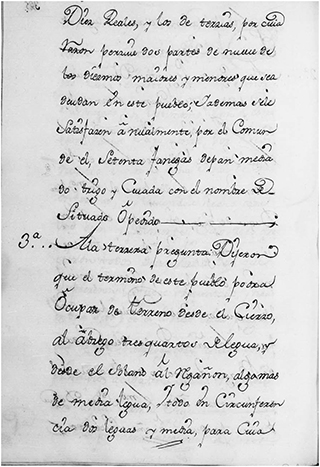 Diez Reales, y los de tercias, por cuia
Razon percive dos partes de nueve de
los diezmos maiores y menores que se a
deudan en este pueblo; Y ademas se le
Satisfazen ânualmente, por el Comun
de el, Setenta fanegas de pan media
do trigo y Cevada con el nombre D-
Situado Ô pedido
3.ª A la terzera pregunta Dijeron
que el termino de este pueblo podra
Ôcupar de terreno desde el Cierzo,
al âbrego tres quartos de legua, y
desde el Solano âl Rgañon, algo mas
de media legua, Y todo en Circunferen
cia dos leguas y media, para Cuia